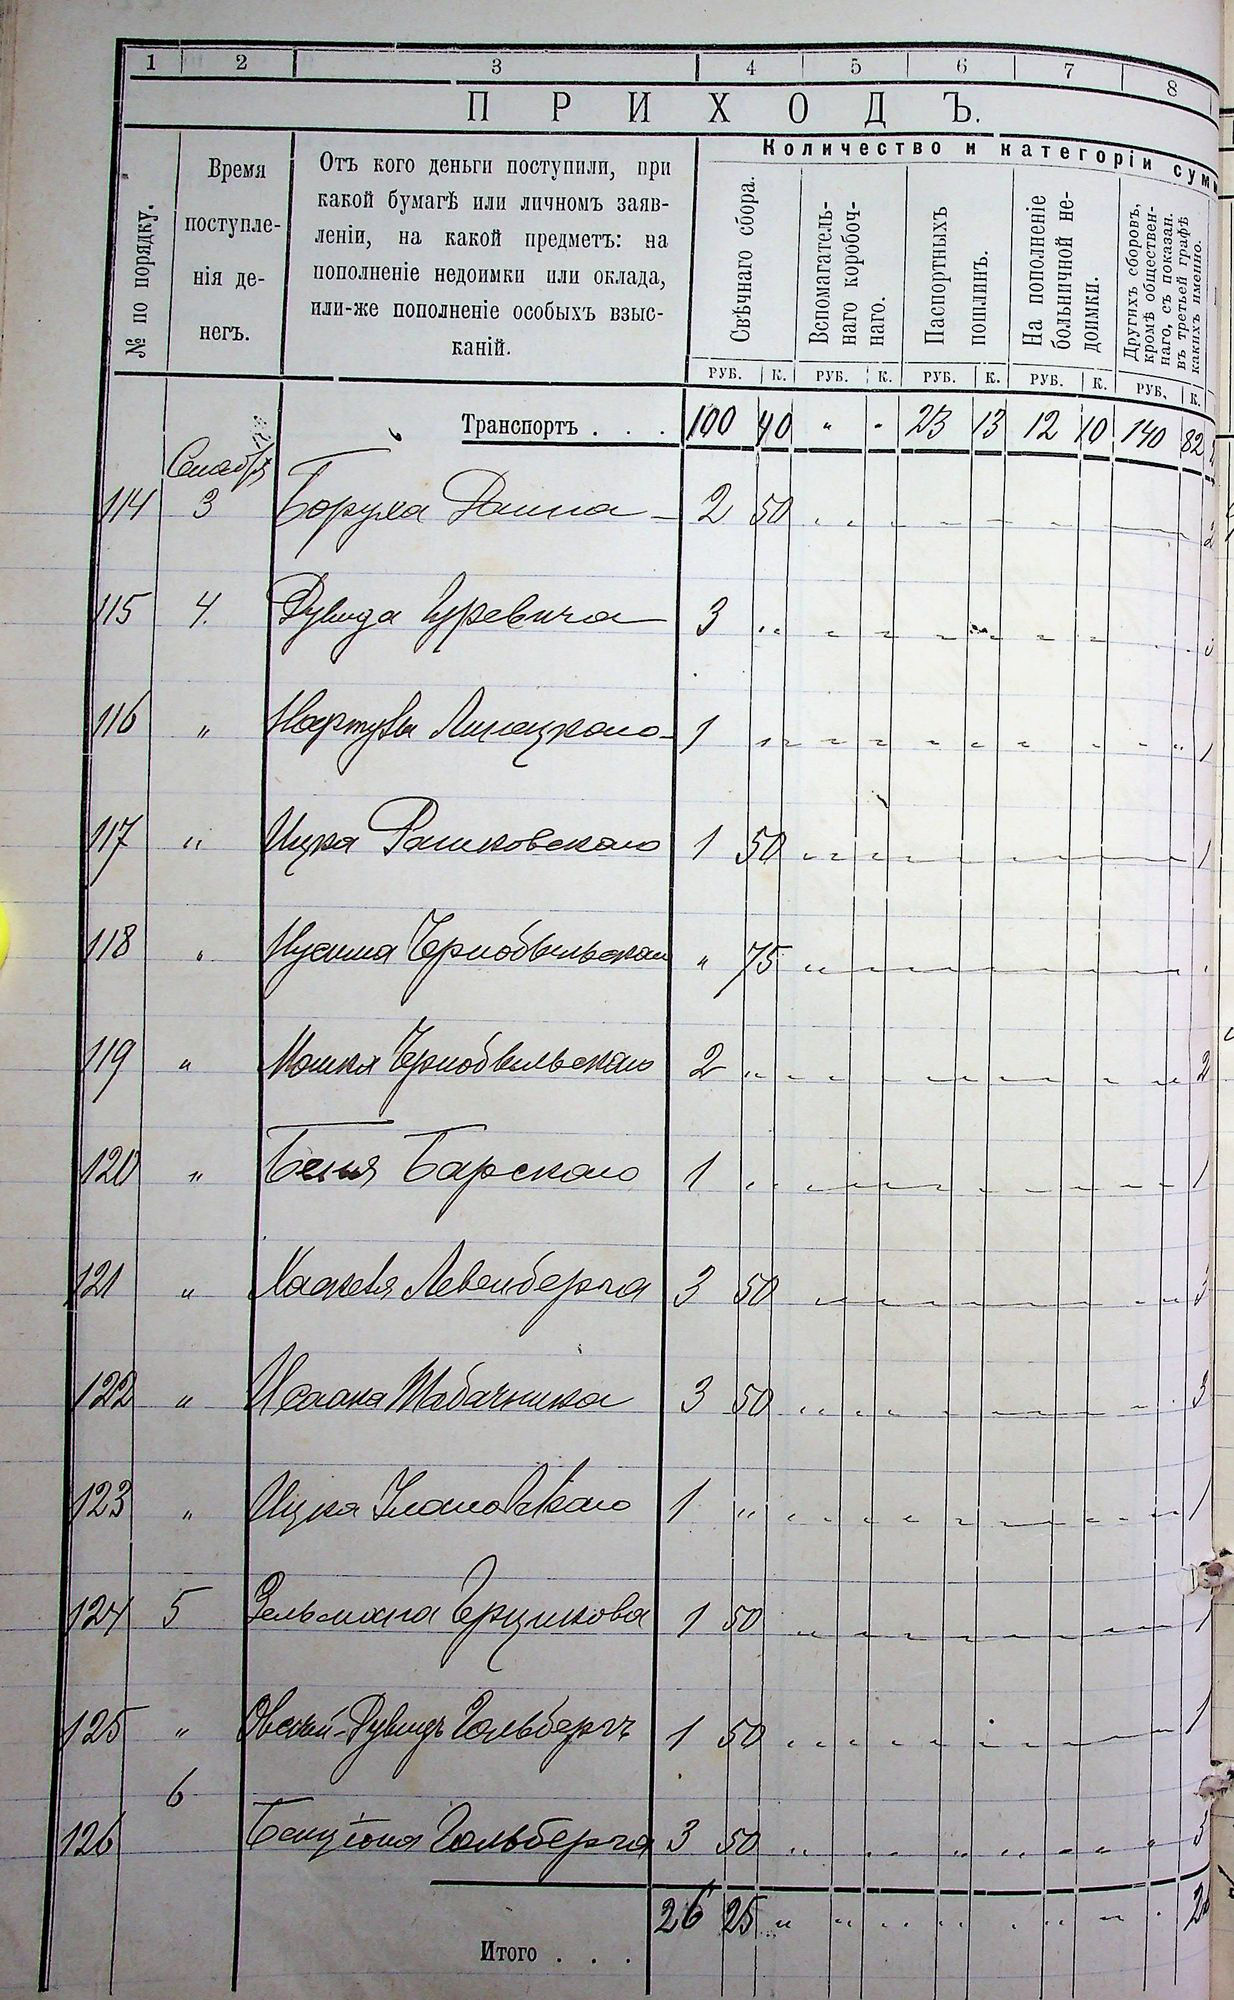 1 2 3 4 5 6 7 8
ПРИХОДЪ.
№ по порядку.
Время
поступле-
нія де-
негъ.
Отъ кого деньги поступили, при
какой бумагѣ или личномъ заяв-
леніи, на какой предметъ: на
пополненіе недоимки или оклада,
или-же пополненіе особыхъ взыс-
каній.
Количество и категоріи сумм
Свѣчнаго сбора.
Вспомагатель-
наго коробоч-
наго.
Паспортныхъ
пошлинъ.
На пополненіе
больничной не-
доимки.
Другихъ сборовъ,
кромѣ обществен-
наго, съ показан.
въ третьей графѣ
какихъ именно.
РУБ. К. РУБ. К. РУБ. К. РУБ. К. РУБ. К.
Транспортъ . . . 100 40 " " 23 13 12 10 140 82
114 3 Боруха 2 50
115 4. Дувида Гуревича 3
116 " Липецкаго 1 1
117 " Ицка Рашковскаго 1 50 1
118 " Нусина Чернобыльскаго " 75
119 " Мошка Чернобыльскаго 2 " 2
120 " Беня Барскаго 1 1
121 " Хаскеля Левенберга 3 50 3
122 " Исаака Табачника 3 50 3
123 " Ицка Улановскаго 1 " 1
124 5 Зельмана Герцикова 1 50 1
125 " Овсей-Дувидъ Гольбергъ 1 50 1
6
126 Бенціона Гольберга 3 50 3
Итого . . . 26 25